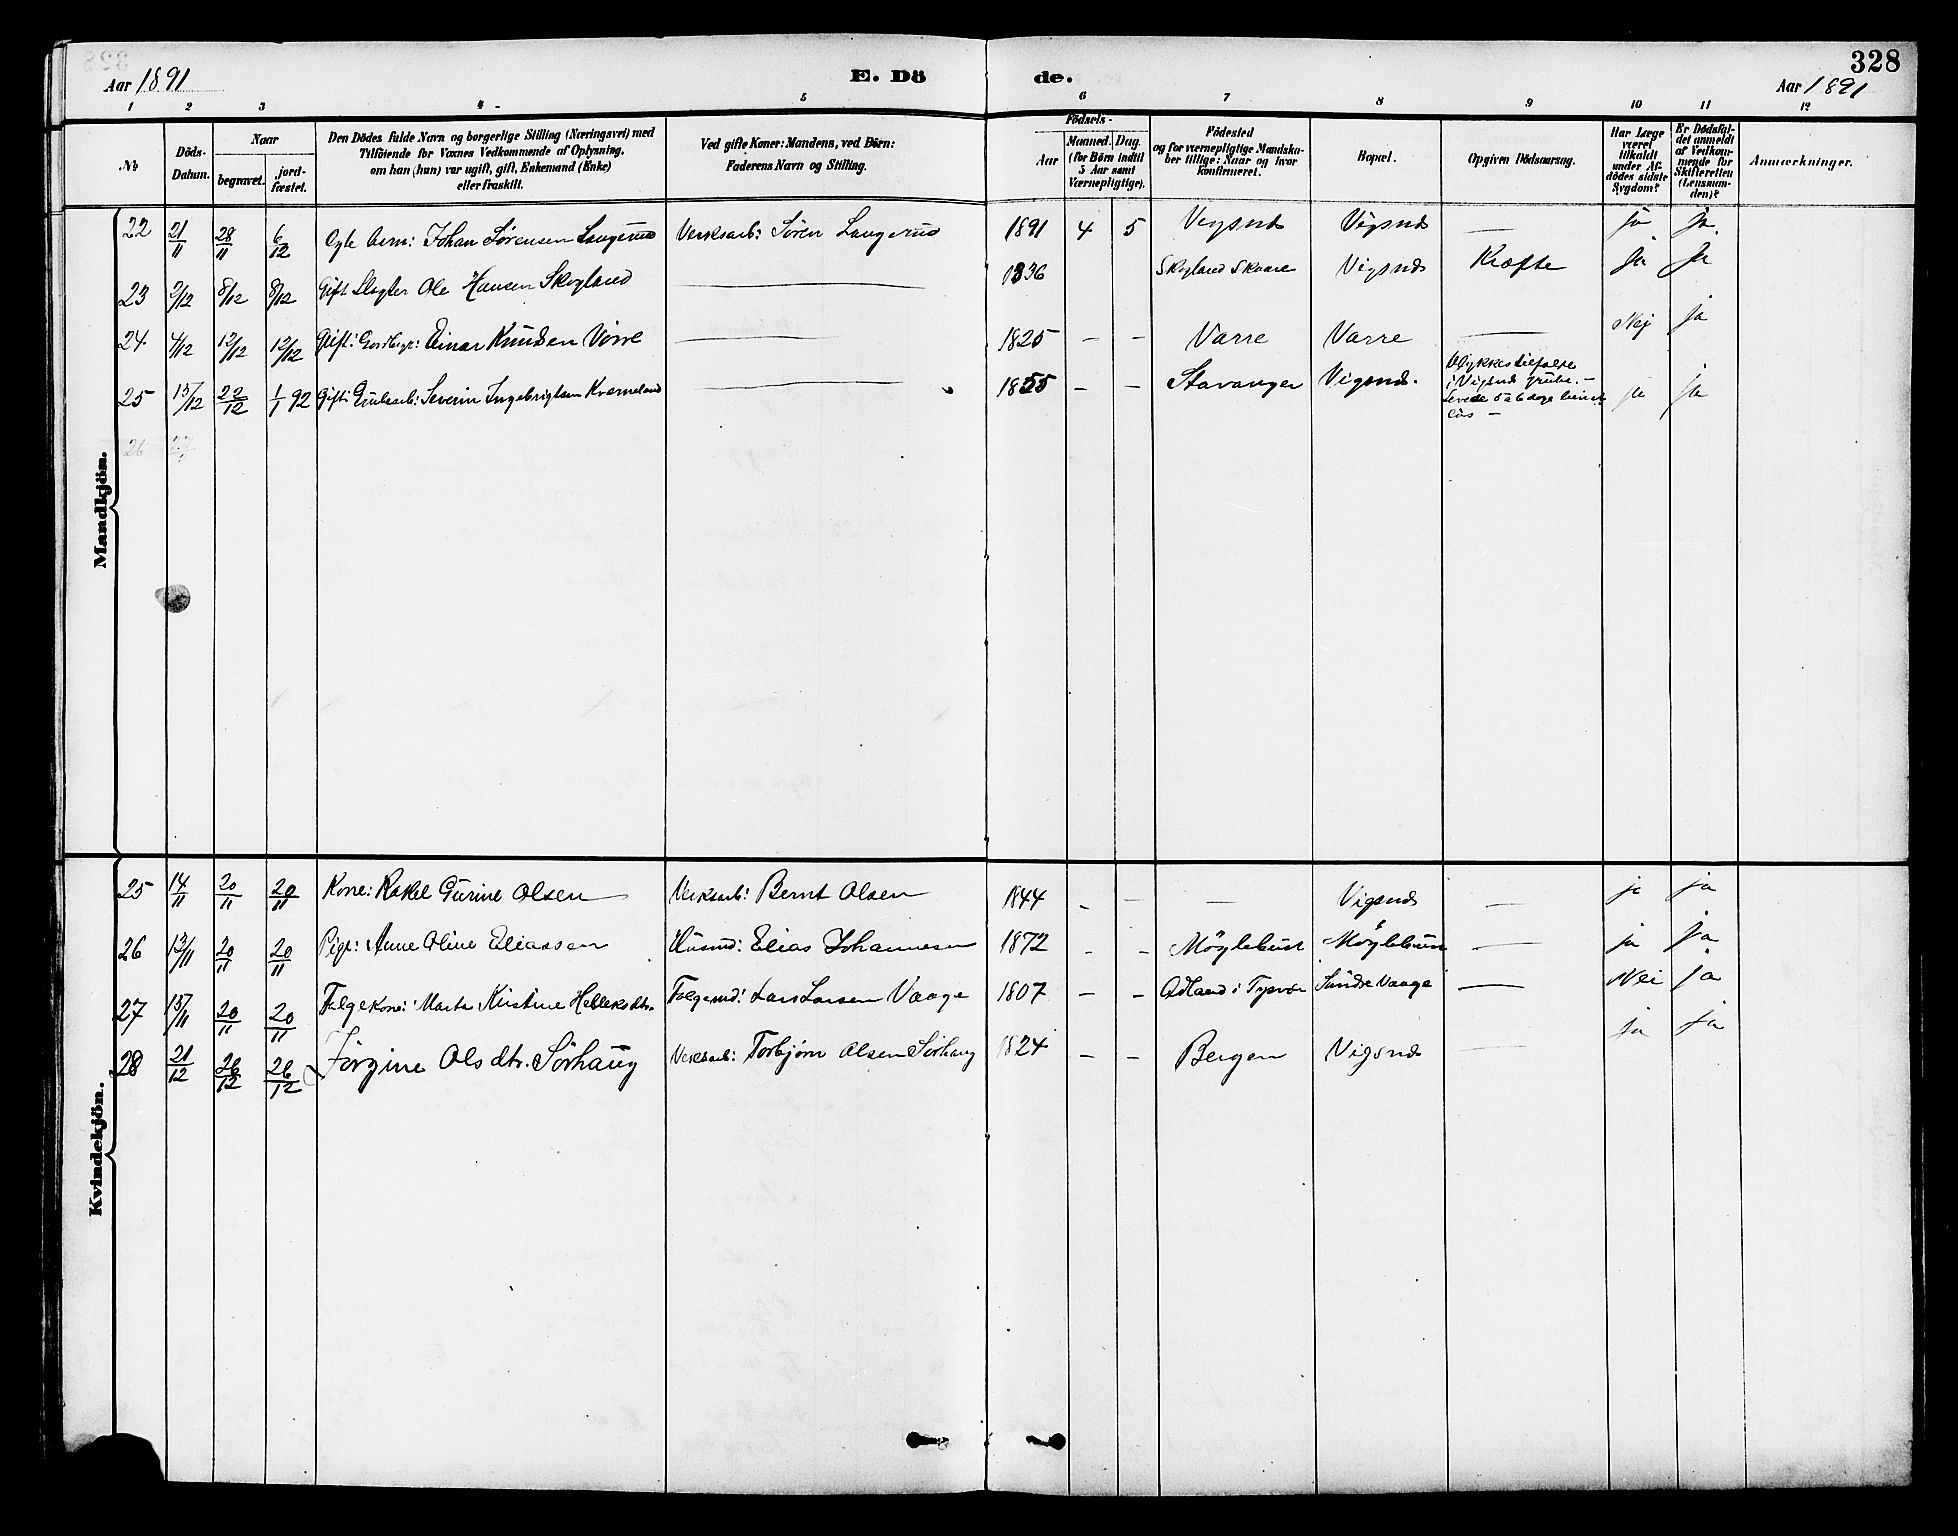 328
Aar 1891 E. Dö de. Aar 1891
1 2 3 4 5 6 7 8 9 10 11 12
№ Döds-Datum. Naar begravet. jord-fæstet. Den Dödes fulde Navn og borgerlige Stilling (Næringsvei) med Tilföiende for Voxnes Vedkommende af Oplysning, om han (hun) var ugift, gift, Enkemand (Enke) eller fraskilt. Ved gifte Koner: Mandens, ved Börn: Faderens Navn og Stilling. Födsels- Aar Maaned. Dag. (for Börn indtil 5 Aar samt Værnepligtige). Födested og for værnepligtige Mandskaber tillige: Naar og hvor konfirmeret. Bopæl. Opgiven Dödsaarsag. Har Læge været tilkaldt under Afdödes sidste Sygdom? Er Dödsfaldet anmeldt af Vedkommende for Skifteretten (Lensmanden)? Anmærkninger.
Mandkjön.
22 21/11 28/11 6/12 Ægte Barn: Johan Sørensen Langerud Verksarb: Søren Langerud 1891 4 5 Vigsnes Vigsnes — ja ja.
23 2/12 8/12 8/12 Gift Slagter Ole Hansen Skogland — 1836 Skogland Skaare Vigsnes Kræfte Ja Ja
24. 4/12 12/12 12/12 Gift: Gardbgr: Einar Knudsen Vorre — 1825 - - Varre Varre — Nej Ja
25 15/12 22/12 1/1 92 Gift: Grubearb: Severin Ingebrigtsen Kverneland — 1855 - - Stavanger Vigsnes. Ulykkestilfælde i Vigsnes grube. - Levede 5 a 6 dage bevidstløs — ja ja
26 27
Kvindekjön.
25 14/11 20/11 20/11 Kone: Rakel Gurine Olsen Verksarb: Bernt Olsen 1844 - - — Vigsnes — ja ja
26 13/11 20/11 20/11 Pige: Anne Oline Eliassen Husmd: Elias Johannesen 1872 - - Möglebust Möglebust — ja ja
27 15/11 20/11 20/11 Følgekone: Marta Kristine Helleksdtr. Følgemd: Lars Larsen Vaage 1807 - - Adland i Tysvær Søndre Vaage — Nei ja
28 21/12 26/12 26/12 Jörgine Olsdtr. Sörhaug Verksarb: Torbjørn Olsen Sörhaug 1824 - - Bergen Vigsnes — ja ja